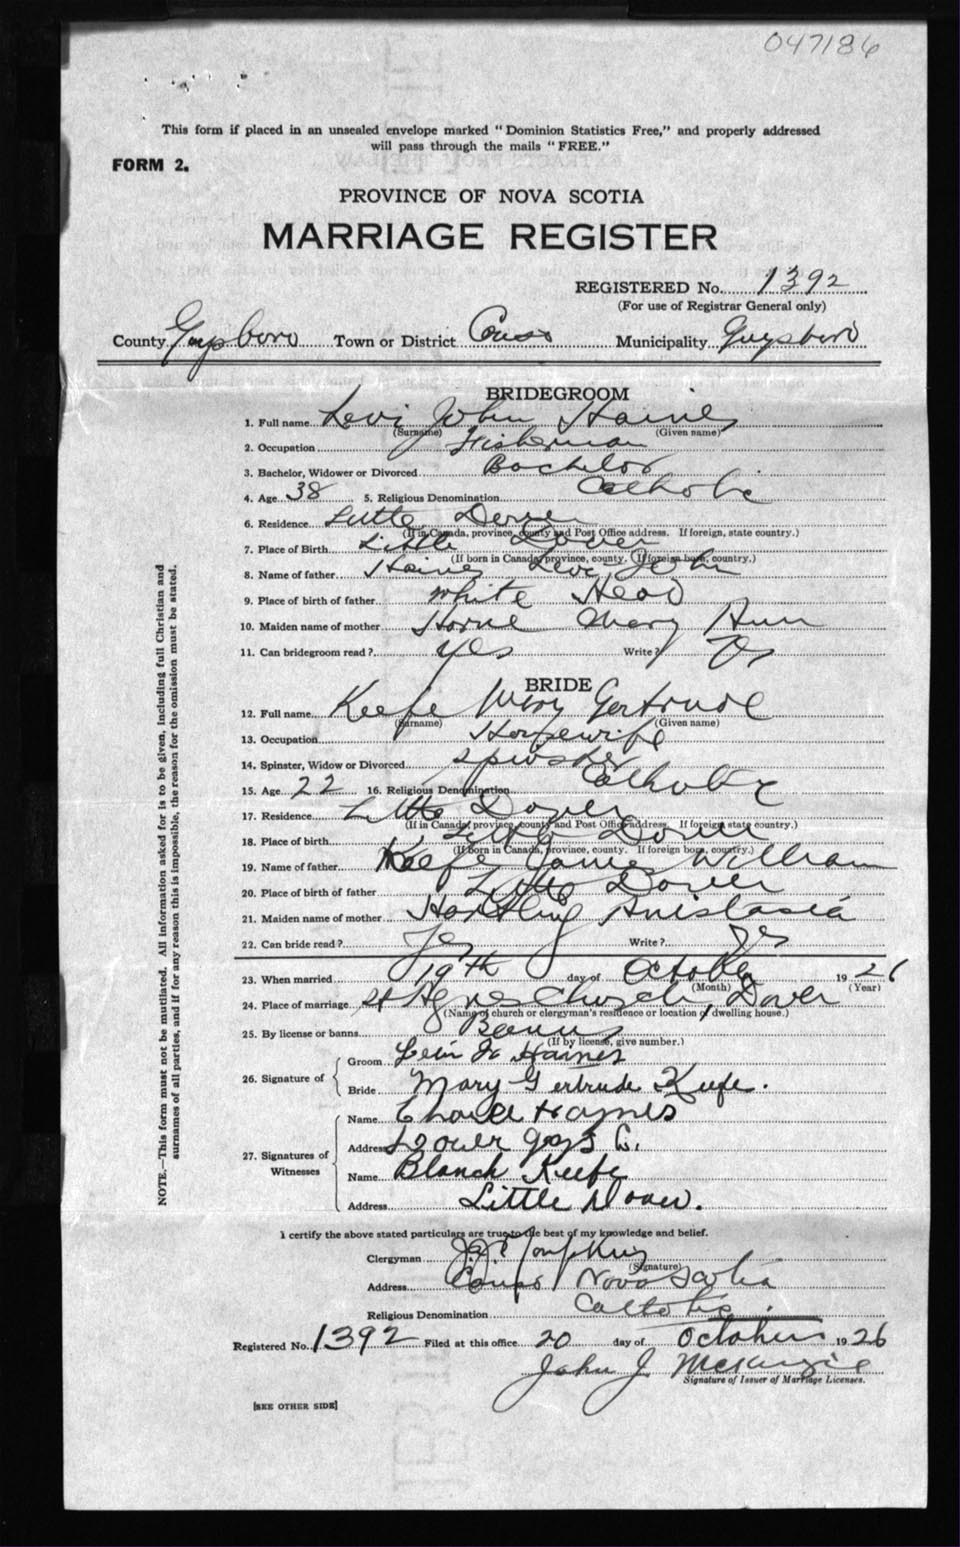 047186
This form if placed in an unsealed envelope marked "Dominion Statistics Free," and properly addressed
will pass through the mails "FREE."
FORM 2.
PROVINCE OF NOVA SCOTIA
MARRIAGE REGISTER
REGISTERED No. 1392
(For use of Registrar General only)
County Guysboro Town or District Canso Municipality Guysboro
BRIDEGROOM
1. Full name Levi John Haines
(Surname) (Given name)
2. Occupation Fisherman
3. Bachelor, Widower or Divorced Bachelor
4. Age 38 5. Religious Denomination Catholic
6. Residence Little Dover
(If in Canada, province, county and Post Office address. If foreign, state country.)
7. Place of Birth Little Dover
(If born in Canada, province, county. If foreign born, country.)
8. Name of father Haines Levi John
9. Place of birth of father White Head
10. Maiden name of mother Horne Mary Ann
11. Can bridegroom read? Yes Write? Yes
BRIDE
12. Full name Keefe Mary Gertrude
(Surname) (Given name)
13. Occupation Housewife
14. Spinster, Widow or Divorced Spinster
15. Age 22 16. Religious Denomination Catholic
17. Residence Little Dover
(If in Canada, province, county and Post Office address. If foreign state country.)
18. Place of birth Little Dover
(If born in Canada, province, county. If foreign born, country.)
19. Name of father Keefe James William
20. Place of birth of father Little Dover
21. Maiden name of mother Hartling Anistasia
22. Can bride read? Yes Write? Yes
23. When married 19th day of October 1926
(Month) (Year)
24. Place of marriage St Agnes Church, Dover
(Name of church or clergyman's residence or location of dwelling house.)
25. By license or banns Banns
(If by license, give number.)
26. Signature of
Groom Levi J Haines
Bride Mary Gertrude Keefe.
27. Signatures of Witnesses
Name Haynes
Address Dover C.
Name Blanch Keefe
Address Little Dover.
I certify the above stated particulars are true to the best of my knowledge and belief.
Clergyman Tompkins
(Signature)
Address Canso Nova Scotia
Religious Denomination Catholic.
Registered No. 1392 Filed at this office 20 day of October 1926
John J McKenzie
Signature of Issuer of Marriage Licenses.
[SEE OTHER SIDE]
NOTE.—This form must not be mutilated. All information asked for is to be given, including full Christian and
surnames of all parties, and if for any reason this is impossible, the reason for the omission must be stated.